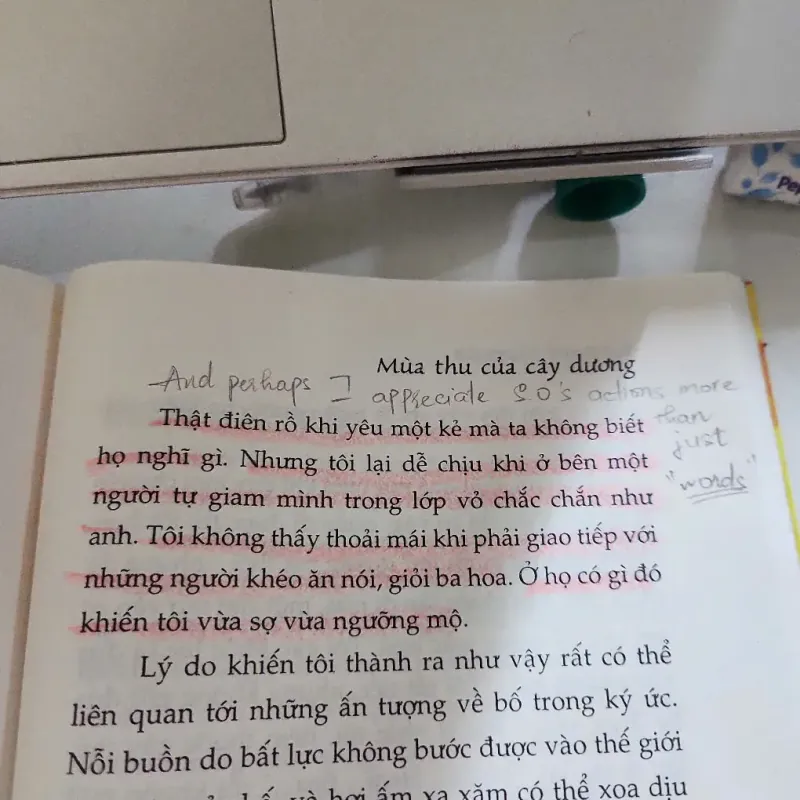 Pep
Mùa thu của cây dương
And perhaps I appreciate S.O's actions more
than
just
"words"
Thật điên rồ khi yêu một kẻ mà ta không biết
họ nghĩ gì. Nhưng tôi lại dễ chịu khi ở bên một
người tự giam mình trong lớp vỏ chắc chắn như
anh. Tôi không thấy thoải mái khi phải giao tiếp với
những người khéo ăn nói, giỏi ba hoa. Ở họ có gì đó
khiến tôi vừa sợ vừa ngưỡng mộ.
Lý do khiến tôi thành ra như vậy rất có thể
liên quan tới những ấn tượng về bố trong ký ức.
Nỗi buồn do bất lực không bước được vào thế giới
và hơi ấm xa xăm có thể xoa dịu